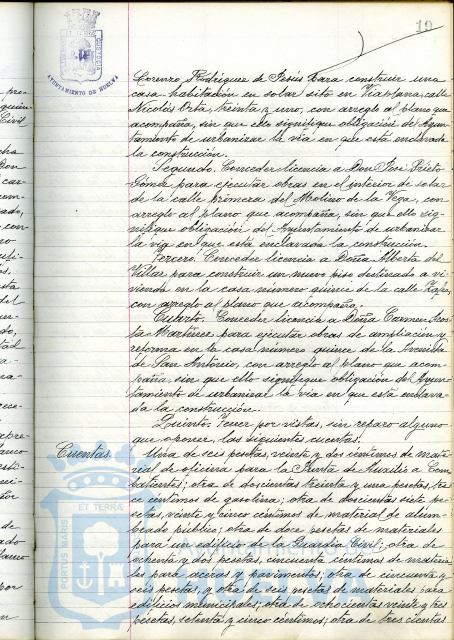 19
AYUNTAMIENTO DE HUELVA
Lorenzo Rodríguez de Jesús para construir una
casa habitación en solar sito en Viaplana, calle
Nicolás Orta treinta y uno, con arreglo al plano que
acompaña, sin que ello signifique obligación del Ayun-
tamiento de urbanizar la vía en que está enclavada
la construcción.
Segundo. Conceder licencia a Don José Prieto
Gómez para ejecutar obras en el interior de solar
de la calle primera del Molino de la Vega, con
arreglo al plano que acompaña, sin que ello sig-
nifique obligación del Ayuntamiento de urbanizar
la vía en que está enclavada la construcción.
Tercero. Conceder licencia a Doña Alberta del
Villar para construir un nuevo piso destinado a vi-
vienda en la casa número quince de la calle
con arreglo al plano que acompaña.
Cuarto. Conceder licencia a Doña Carmen
Martínez para ejecutar obras de ampliación y
reforma en la casa número quince de la Avenida
de San Antonio, con arreglo al plano que acom-
paña, sin que ello signifique obligación del Ayun-
tamiento de urbanizar la vía en que está enclava-
da la construcción.
Quinto. Tener por vistas, sin reparo alguno
que oponer, las siguientes cuentas.
Cuentas. Una de seis pesetas, veinte y dos céntimos de mate-
rial de oficina para la Junta de Auxilio a Com-
batientes; otra de doscientas treinta y una pesetas, tre-
ce céntimos de gasolina; otra de doscientas siete pe-
setas, veinte y cinco céntimos de material de alum-
brado público; otra de doce pesetas de materiales
para un edificio de la Guardia Civil; otra de
ochenta y dos pesetas, cincuenta céntimos de materia-
les para aceras y pavimentos; otra de cincuenta y
seis pesetas, y otra de seis pesetas de materiales para
edificios municipales; otra de ochocientas veinte y tres
pesetas, setenta y cinco céntimos; otra de trescientas